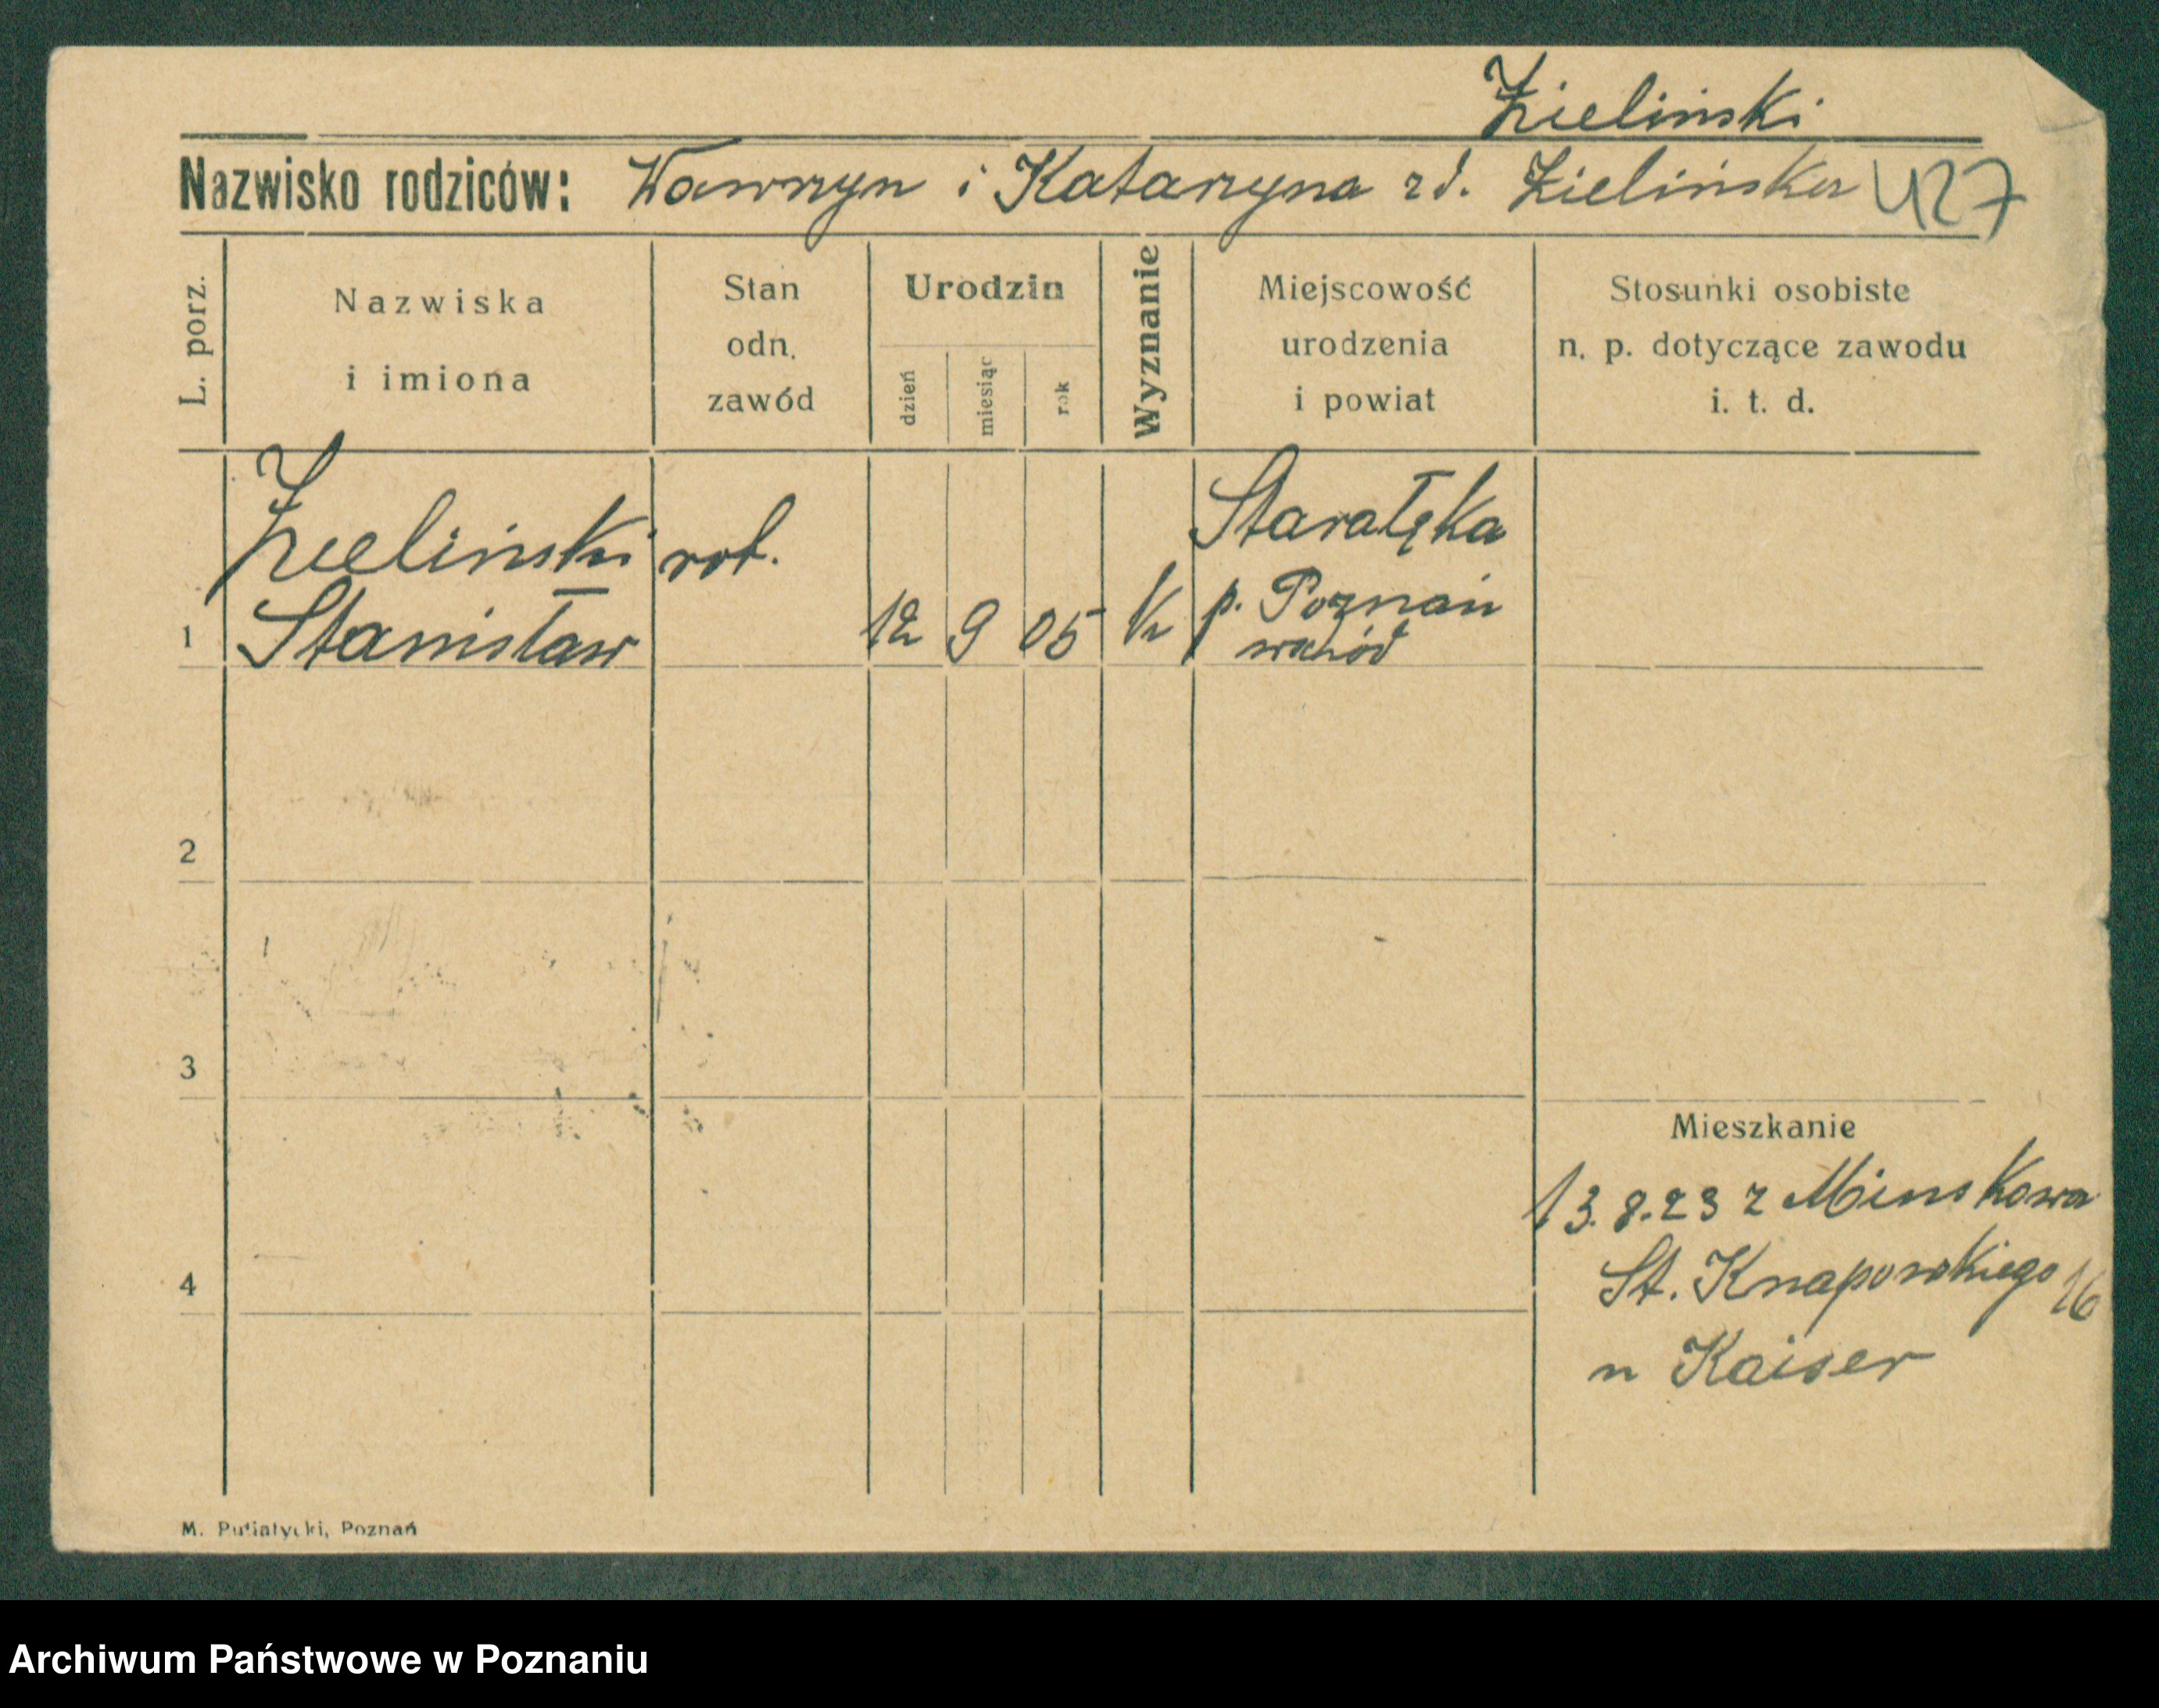 Zieliński
Nazwisko rodziców: Wawrzyn i Katarzyna zd. Zielińska 427
L. porz.
Nazwiska i imiona
Stan odn. zawód
Urodzin
dzień miesiąc rok
Wyznanie
Miejscowość urodzenia i powiat
Stosunki osobiste n. p. dotyczące zawodu i. t. d.
Zieliński rob. Starałęka
1 Stanisław 12 9 05 K p. Poznań
wschód
2
3
Mieszkanie
13.8.23 z Minskowa
4 St. Knapowskiego 16
u Kaiser
M. Putiatycki, Poznań
Archiwum Państwowe w Poznaniu